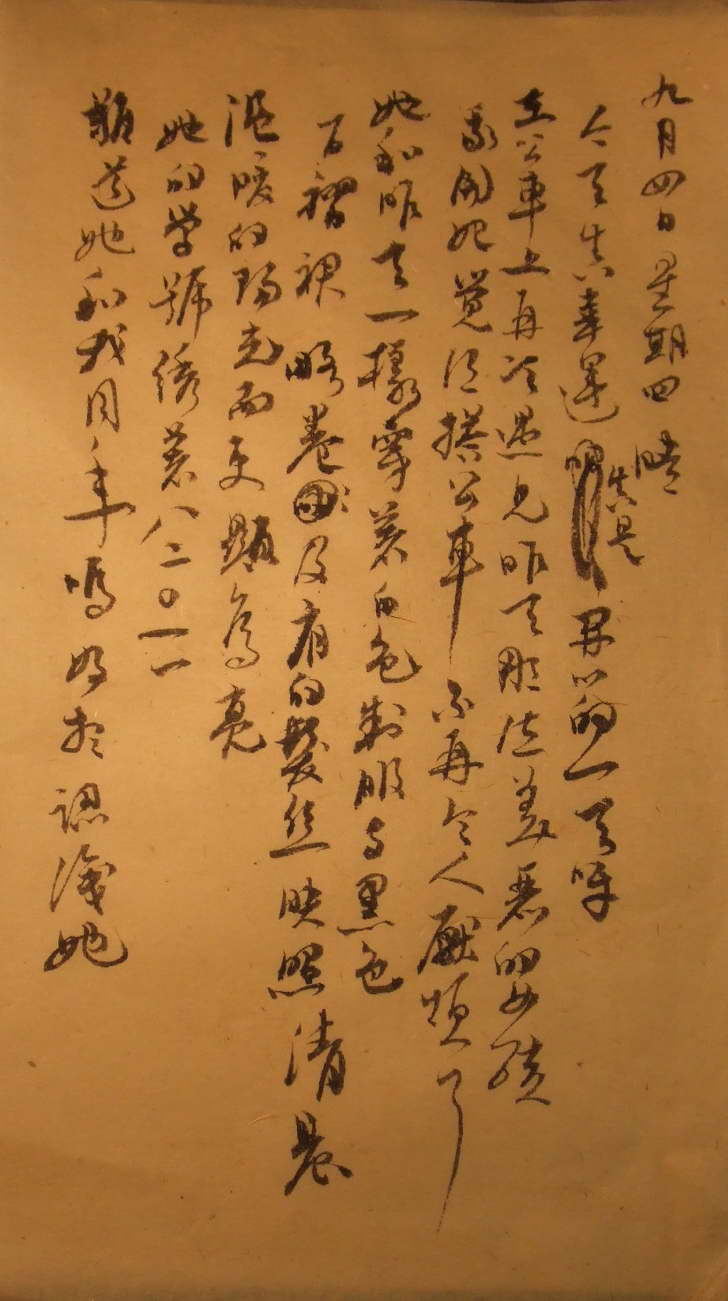 九月四日 星期四 晴
今天真幸運 真是 开心的一天呀
在公車上再次遇見昨天那位美麗的女孩
我開始覺得搭公車 不再令人厭煩了
她和昨天一樣穿著白色制服与黑色
百褶裙 略卷及肩的髮絲映照清晨
温暖的陽光而更顯烏亮
她的学號绣著八二〇一一
難道她和我同年嗎 好想認識她